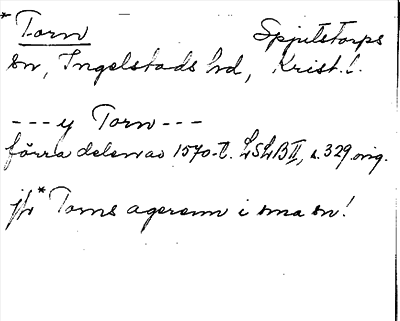 * Torn Spjutstorps
sn, Ingelstads hd, Krist. l.
--- y Torn ---
förra delen av 1570-t. LSLB II, s. 329. orig.
jfr * Torns agerenn i sma sn!